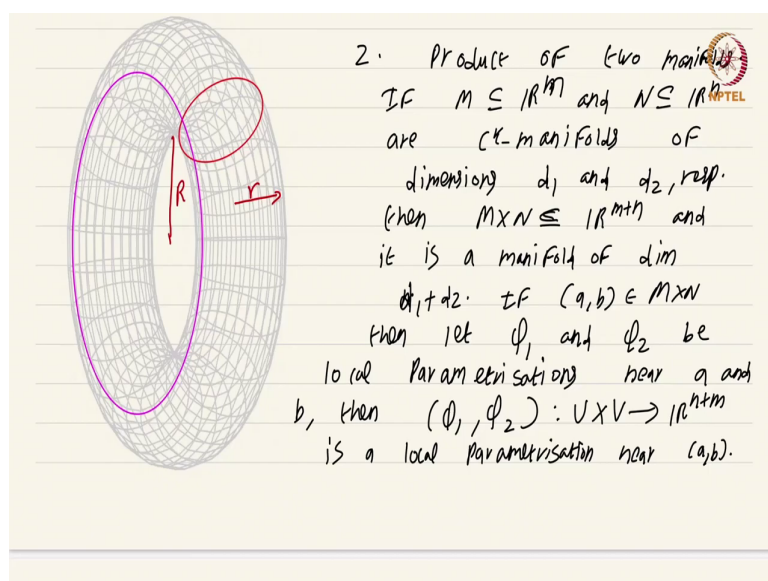 2. Product of two manifolds
IF M ⊆ ℝᵐ and N ⊆ ℝⁿ
NPTEL
are Cᵏ-manifolds of
dimensions d₁ and d₂, resp.
then M×N ⊆ ℝᵐ⁺ⁿ and
it is a manifold of dim
d₁+d₂. IF (a,b) ∈ M×N
then let φ₁ and φ₂ be
local parametrisations near a and
b, then (φ₁, φ₂) : U×V → ℝⁿ⁺ᵐ
is a local parametrisation near (a,b).
R
r